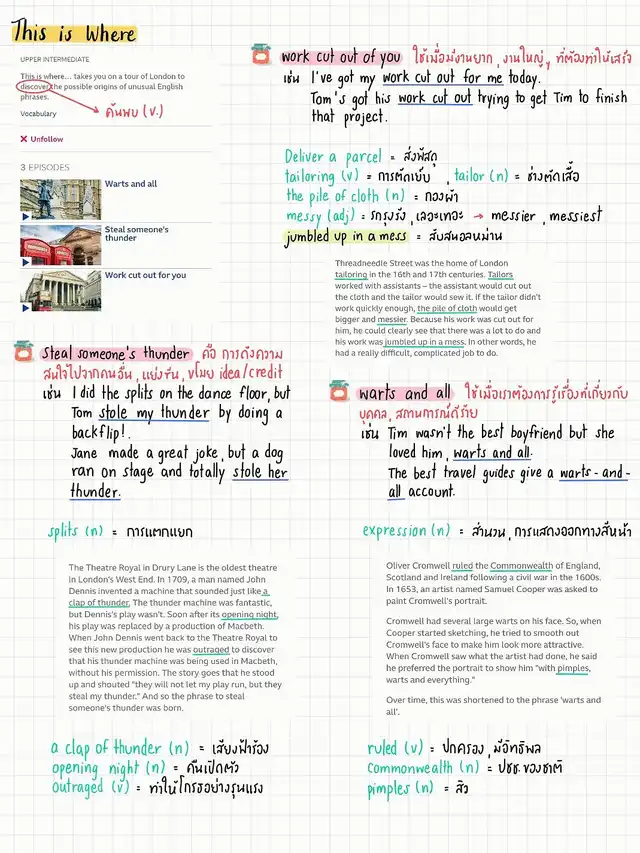 This is Where
UPPER INTERMEDIATE
This is where... takes you on a tour of London to
discover the possible origins of unusual English
phrases.
Vocabulary
ค้นพบ (v.)
Unfollow
3 EPISODES
Warts and all
Steal someone's
thunder
Work cut out for you
work cut out of you ใช้เมื่อมีงานยาก, งานใหญ่ๆ ที่ต้องทำให้เสร็จ
เช่น I've got my work cut out for me today.
Tom's got his work cut out trying to get Tim to finish
that project.
Deliver a parcel = ส่งพัสดุ
tailoring (v) = การตัดเย็บ, tailor (n) = ช่างตัดเสื้อ
the pile of cloth (n) = กองผ้า
messy (adj) = รกรุงรัง, เลอะเทอะ → messier, messiest
jumbled up in a mess = สับสนอลหม่าน
Threadneedle Street was the home of London
tailoring in the 16th and 17th centuries. Tailors
worked with assistants – the assistant would cut out
the cloth and the tailor would sew it. If the tailor didn't
work quickly enough, the pile of cloth would get
bigger and messier. Because his work was cut out for
him, he could clearly see that there was a lot to do and
his work was jumbled up in a mess. In other words, he
had a really difficult, complicated job to do.
Steal someone's thunder คือ การดึงความ
สนใจไปจากคนอื่น, แย่งซีน, ขโมย idea/credit
เช่น I did the splits on the dance floor, but
Tom stole my thunder by doing a
backflip!.
Jane made a great joke, but a dog
ran on stage and totally stole her
thunder.
splits (n) = การแตกแยก
The Theatre Royal in Drury Lane is the oldest theatre
in London's West End. In 1709, a man named John
Dennis invented a machine that sounded just like a
clap of thunder. The thunder machine was fantastic,
but Dennis's play wasn't. Soon after its opening night,
his play was replaced by a production of Macbeth.
When John Dennis went back to the Theatre Royal to
see this new production he was outraged to discover
that his thunder machine was being used in Macbeth,
without his permission. The story goes that he stood
up and shouted "they will not let my play run, but they
steal my thunder." And so the phrase to steal
someone's thunder was born.
a clap of thunder (n) = เสียงฟ้าร้อง
opening night (n) = คืนเปิดตัว
outraged (v) = ทำให้โกรธอย่างรุนแรง
warts and all ใช้เมื่อเราต้องการรู้เรื่องที่เกี่ยวกับ
บุคคล, สถานการณ์ดีร้าย
เช่น Tim wasn't the best boyfriend but she
loved him, warts and all.
The best travel guides give a warts-and-
all account.
expression (n) = สำนวน, การแสดงออกทางสีหน้า
Oliver Cromwell ruled the Commonwealth of England,
Scotland and Ireland following a civil war in the 1600s.
In 1653, an artist named Samuel Cooper was asked to
paint Cromwell's portrait.
Cromwell had several large warts on his face. So, when
Cooper started sketching, he tried to smooth out
Cromwell's face to make him look more attractive.
When Cromwell saw what the artist had done, he said
he preferred the portrait to show him "with pimples,
warts and everything."
Over time, this was shortened to the phrase 'warts and
all'.
ruled (v) = ปกครอง, มีอิทธิพล
commonwealth (n) = ปชช. ของชาติ
pimples (n) = สิว